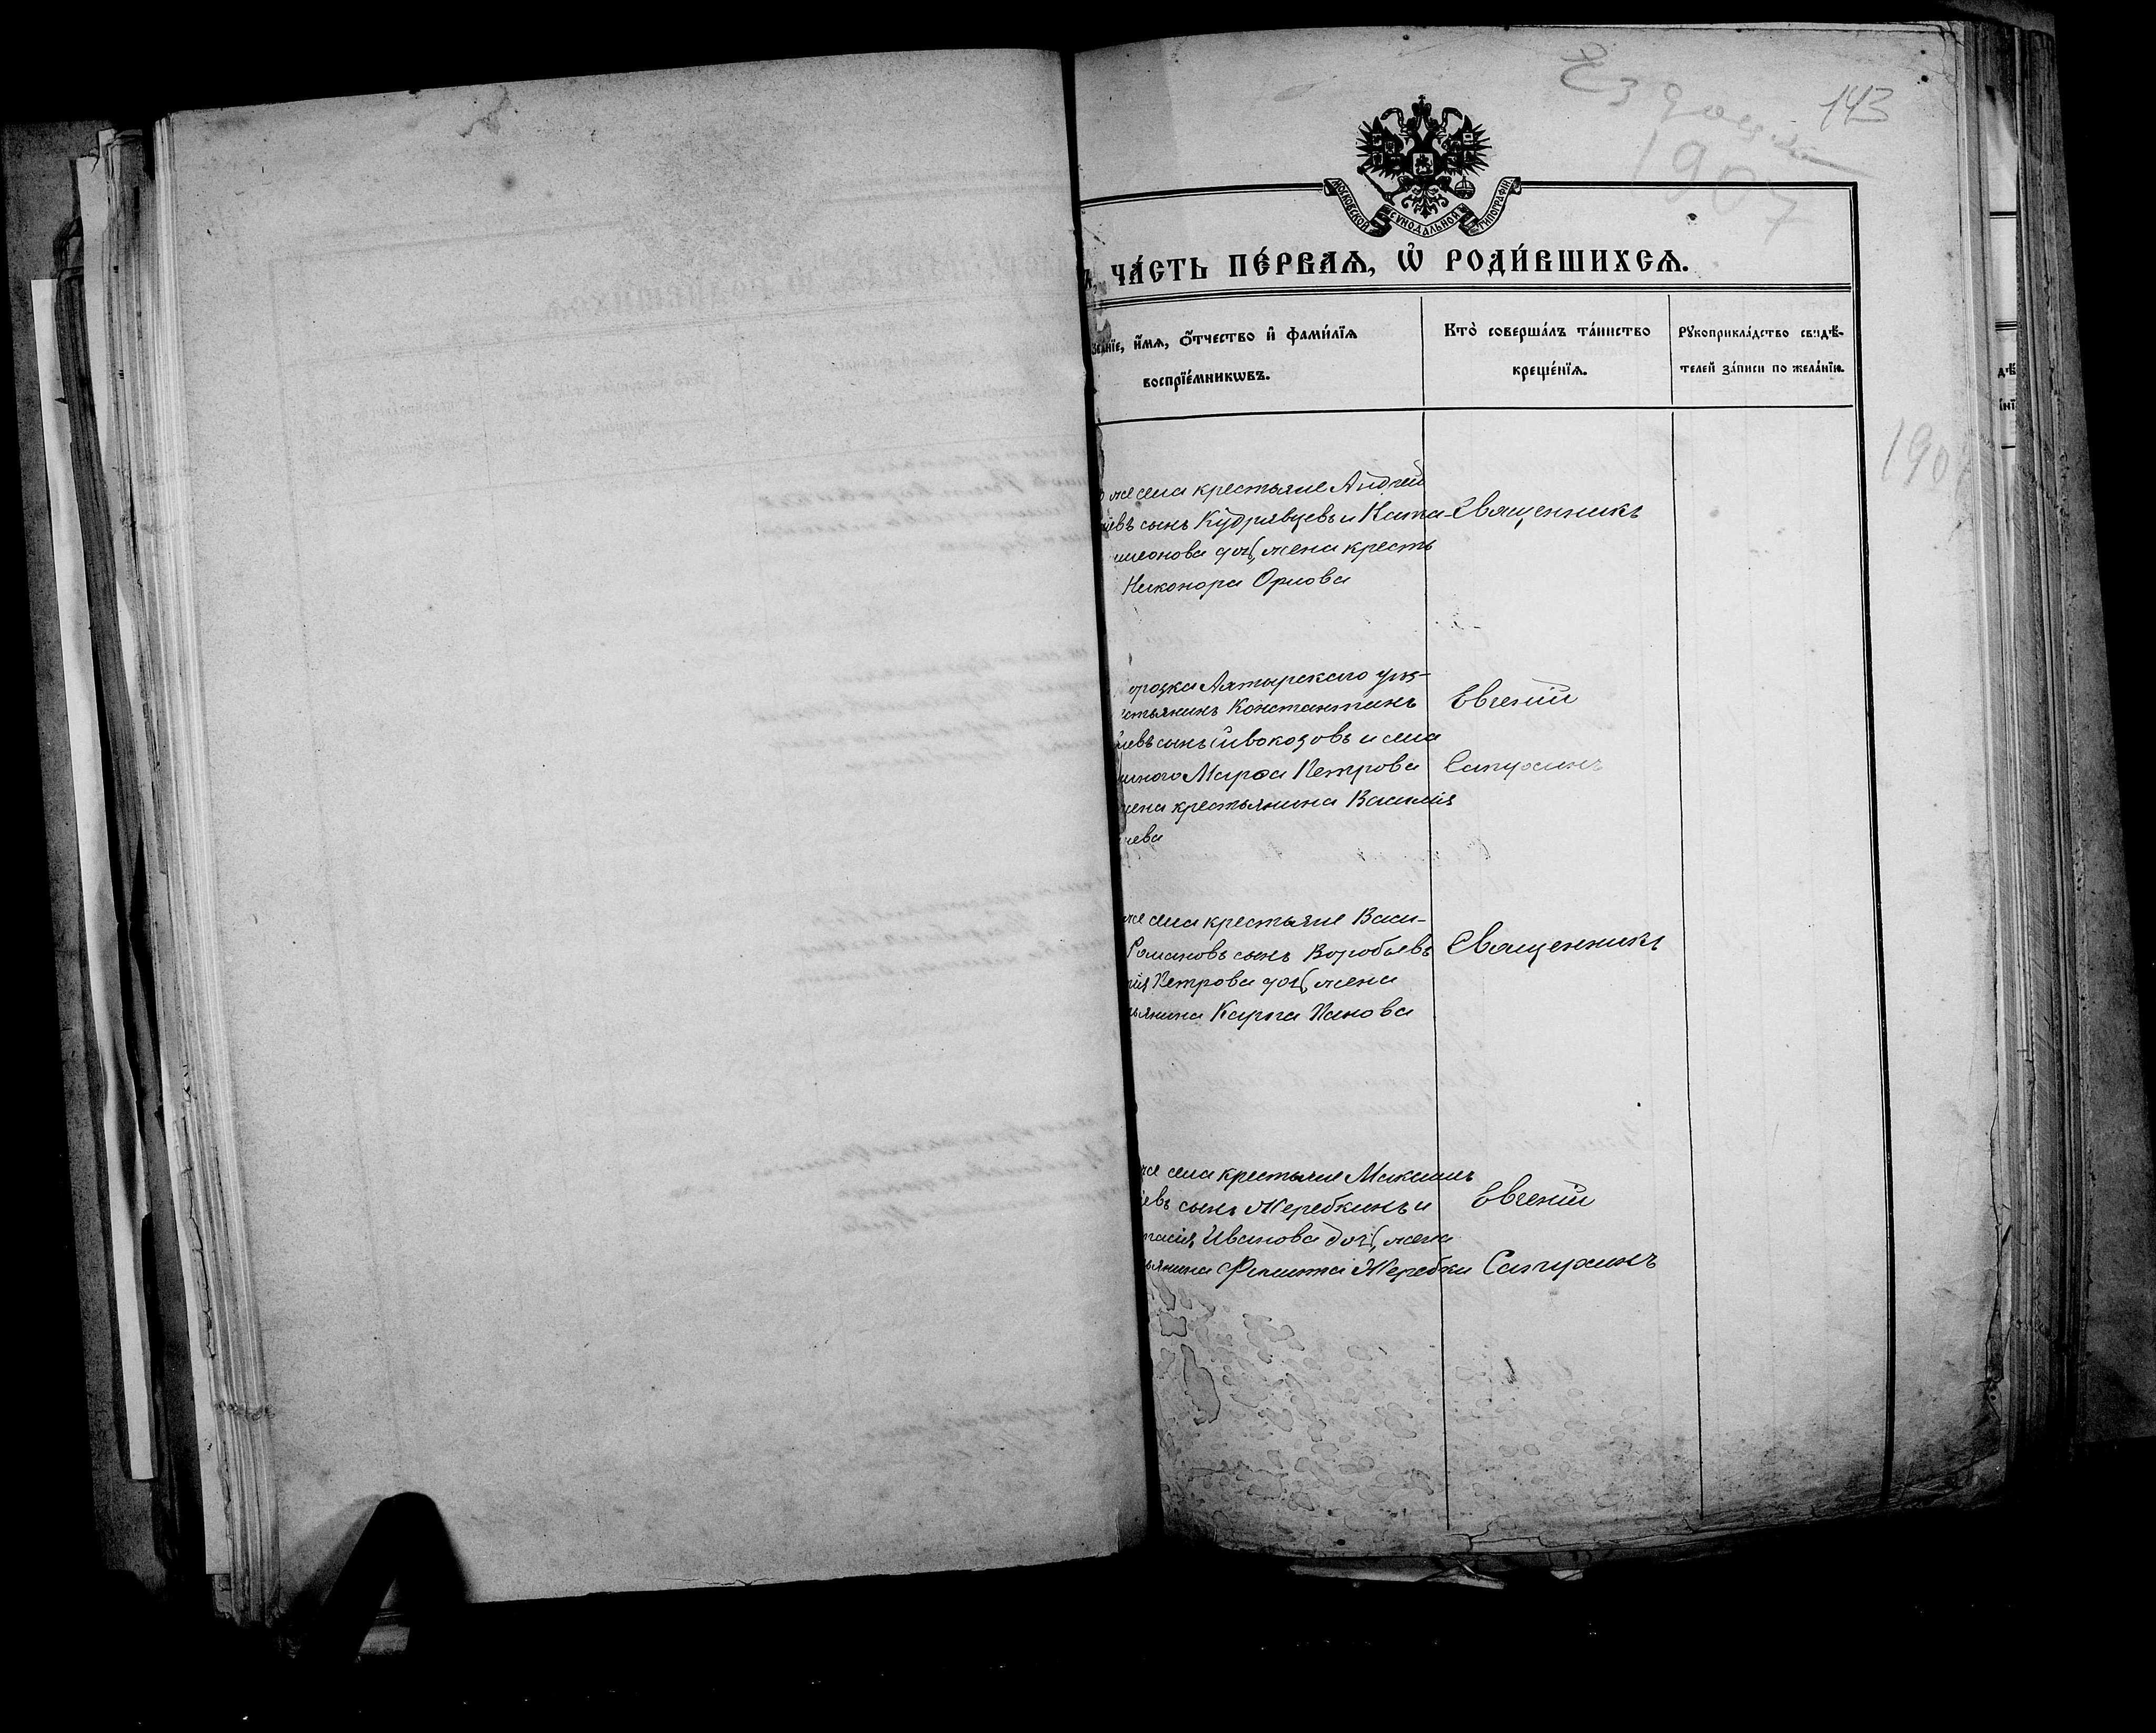 143
1907
МОСКОВСКОЙ СѴНОДАЛЬНОЙ ТИПОГРАФІИ
ЧА́СТЬ ПЕ́РВАѦ, Ѡ҆ РОДИ́ВШИХСѦ.
и҆́мѧ, ѻ҆́тчество и҆ фами́лїѧ
воспрїе́мникѡвъ.
Кто̀ соверша́лъ та́инство
креще́нїѧ.
Рꙋкоприкла́дство свидѣ́-
телей за́писи по жела́нїю.
же села крестьяне Андрей
евъ сынъ Кудрявцевъ и Ката-
имеонова доч., жена кресть
Никонора Орлова
Священникъ
Ахтырскаго уѣз-
стьянинъ Константинъ
евъ сынъ и села
Марѳа Петрова
жена крестьянина Василія
чева
Евгеній
Сапухинъ
же села крестьяне Васи-
Романовъ сынъ Воробьевъ
Петрова доч., жена
ьянина Карпа Панова
Священникъ
же села крестьяне Максимъ
евъ сынъ Жеребкинъ и
тасія Иванова доч., жена
ьянина Филиппа Жеребки
Евгеній
Сапухинъ